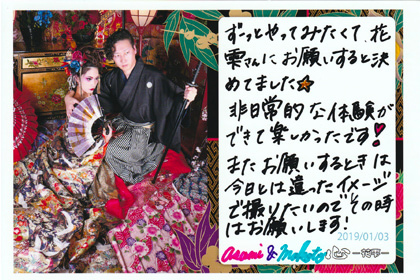 ずっとやってみたくて、花
雲さんにお願いすると決
めてました★
非日常的な体験が
できて楽しかったです!
またお願いするときは
今日とは違ったイメージ
で撮りたいのでその時
はお願いします!
2019/01/03
Asami & Makoto